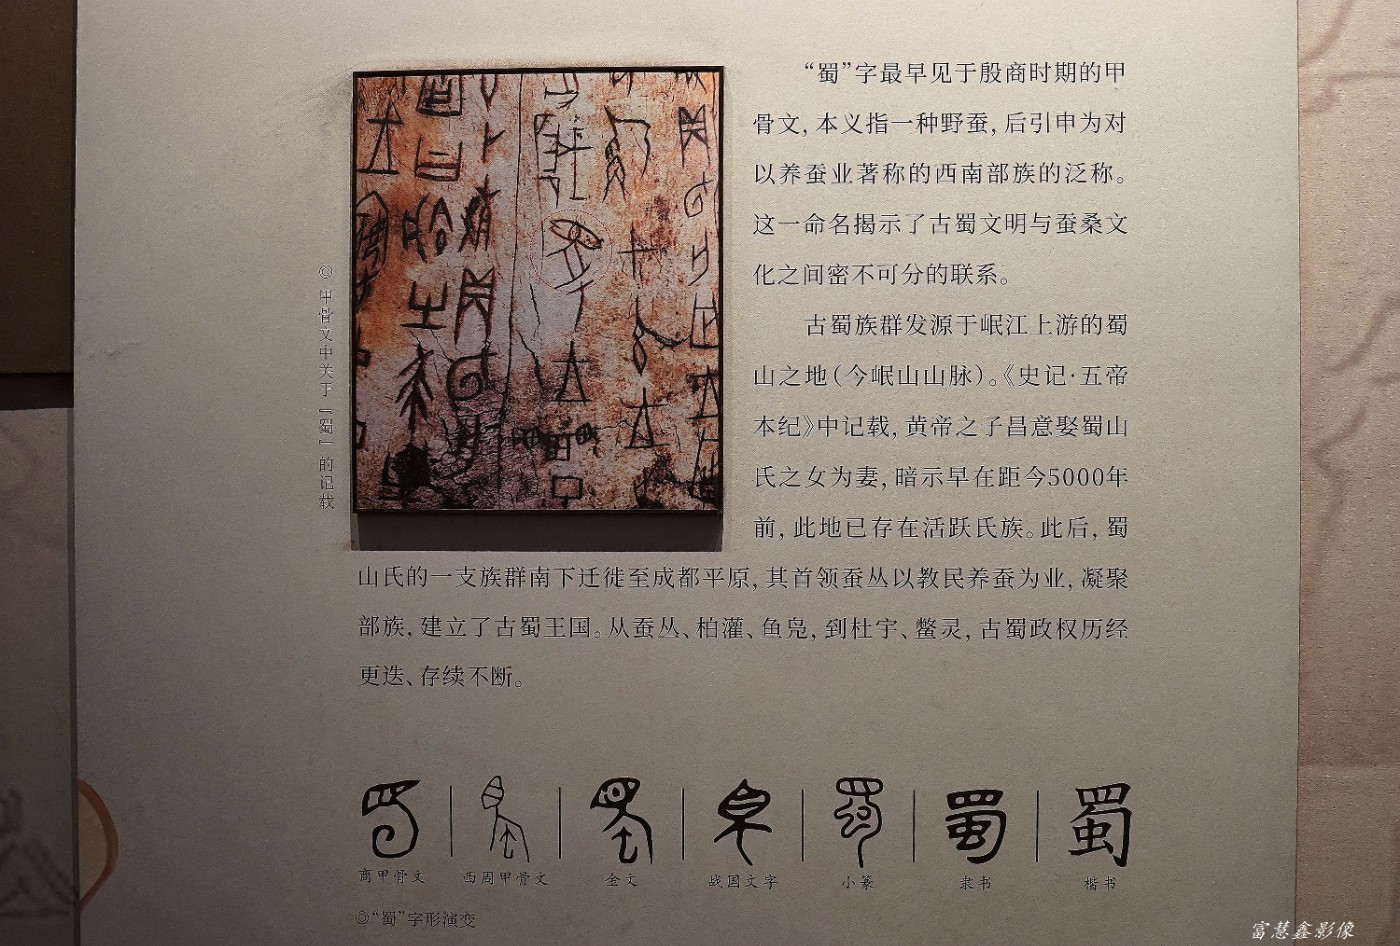 “蜀”字最早见于殷商时期的甲
骨文，本义指一种野蚕，后引申为对
以养蚕业著称的西南部族的泛称。
这一命名揭示了古蜀文明与蚕桑文
化之间密不可分的联系。
古蜀族群发源于岷江上游的蜀
山之地（今岷山山脉）。《史记·五帝
本纪》中记载，黄帝之子昌意娶蜀山
氏之女为妻，暗示早在距今5000年
前，此地已存在活跃氏族。此后，蜀
山氏的一支族群南下迁徙至成都平原，其首领蚕丛以教民养蚕为业，凝聚
部族，建立了古蜀王国。从蚕丛、柏灌、鱼凫，到杜宇、鳖灵，古蜀政权历经
更迭、存续不断。
◎甲骨文中关于「蜀」的记载
蜀
蜀
商甲骨文
西周甲骨文
金文
战国文字
小篆
隶书
楷书
◎“蜀”字形演变
富慧鑫影像